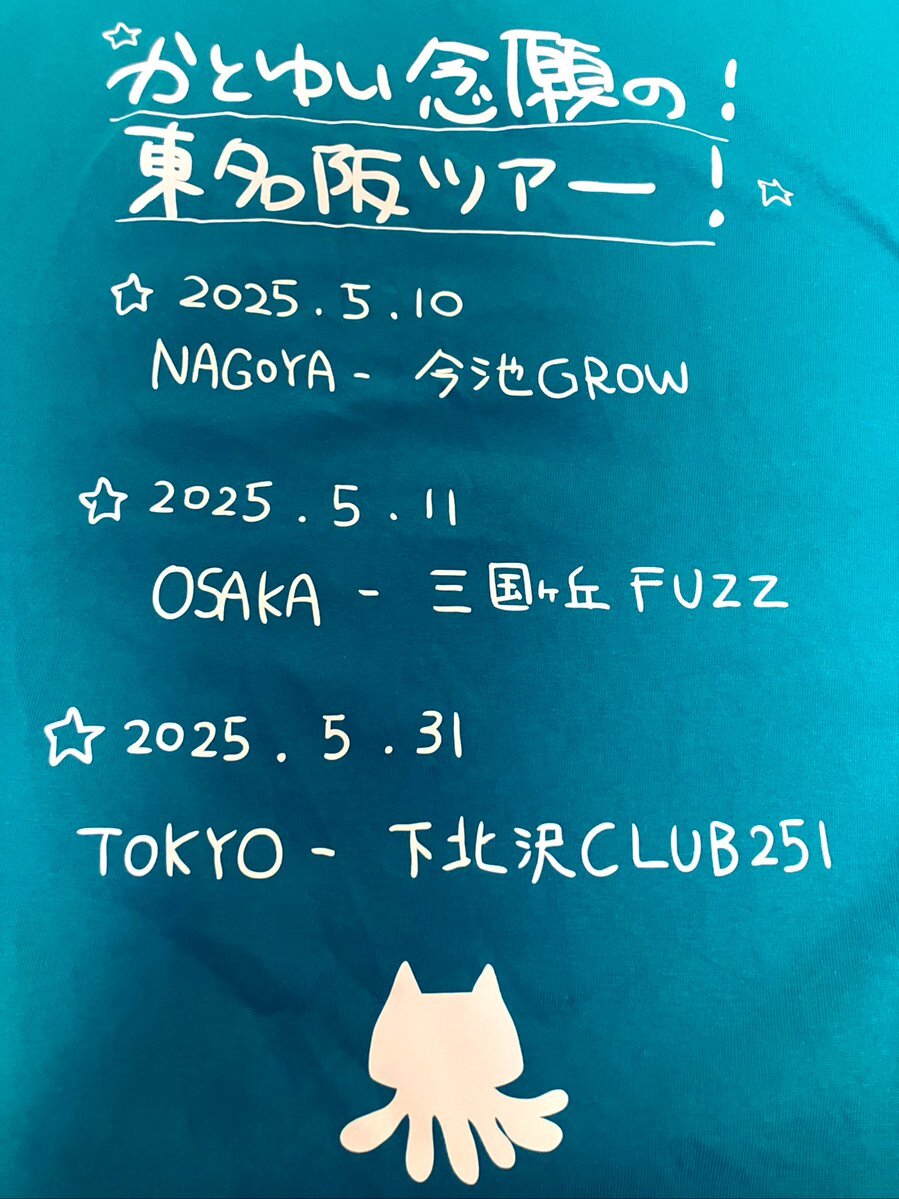 かとゆい念願の!
東名阪ツアー!
☆2025.5.10
NAGOYA - 今池GROW
☆2025.5.11
OSAKA - 三国ヶ丘FUZZ
☆2025.5.31
TOKYO - 下北沢CLUB251